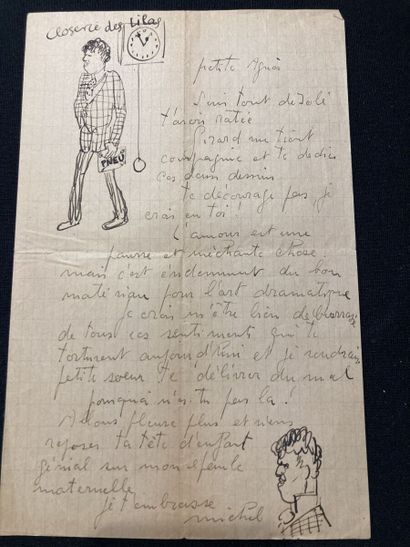 Closerie des Lilas
PNEU
petite Agnès
Suis tout désolé
t'avoir ratée
Girard me tient
compagnie et te dédie
ces deux dessins
te décourage pas, je
crois en toi !
L'amour est une
pauvre et méchante chose
mais c'est evidemment du bon
matériau pour l'art dramatique
je crois m'être bien débarrassé
de tous ces sentiments qui te
torturent aujourd'hui et je voudrais
petite soeur te délivrer du mal
pourquoi n'es tu pas là !
Allons pleure plus et viens
reposer ta tête d'enfant
génial sur mon épaule
maternelle
je t'embrasse
michel